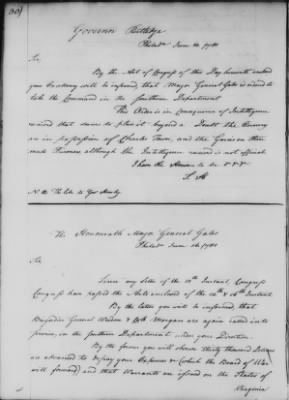 Governor Rutledge
Philada June 14 1780
Sir,
By the Act of Congress of this Day herewith
your Excellency will be informed, that Major General Gates is
take the Command in the southern Department
This Order is in Consequence of Intelligence
that seems to place it beyond a Doubt the Enemy
are in possession of Charles Town, and the Garrison there
made Prisoners although the Intelligence received is not official
I have the Honor to be &c &c
S. H.
N. B. The like to Govr Nash
The Honourable Major General Gates
Philada June 1780
Sir
Since my Letter of the 13th Instant Congress
Congress have passed the Acts enclosed of the 14th & 16th Instant
By the latter you will be informed, that
Brigadier General Weedon & Col. Morgan are again called into
service, in the southern Department under your Direction
By the former you will observe thirty thousand Dollars
are advanced to defray your Expences & (which the Board of War
will forward) and that Warrants are issued on the States of
Virginia